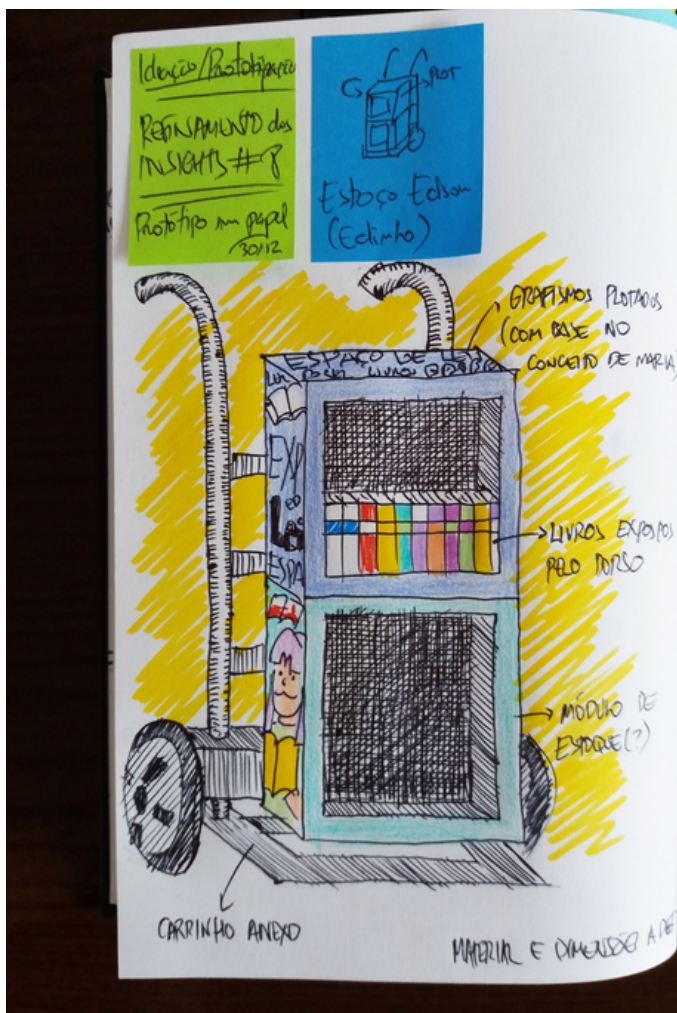 Ideação/Prototipação
REFINAMENTO dos
INSIGHTS #8
Protótipo em papel
30/12
G
PLOT
Esboço Edson
(Edinho)
GRAFISMOS PLOTADOS
(COM BASE NO
CONCEITO DE MARIA)
ESPAÇO DE LE
LIVROS
EXP
ESPA
LIVROS EXPOSTOS
PELO DORSO
MÓDULO DE
ESTOQUE(?)
CARRINHO ANEXO
MATERIAL E DIMENSÕES A DE